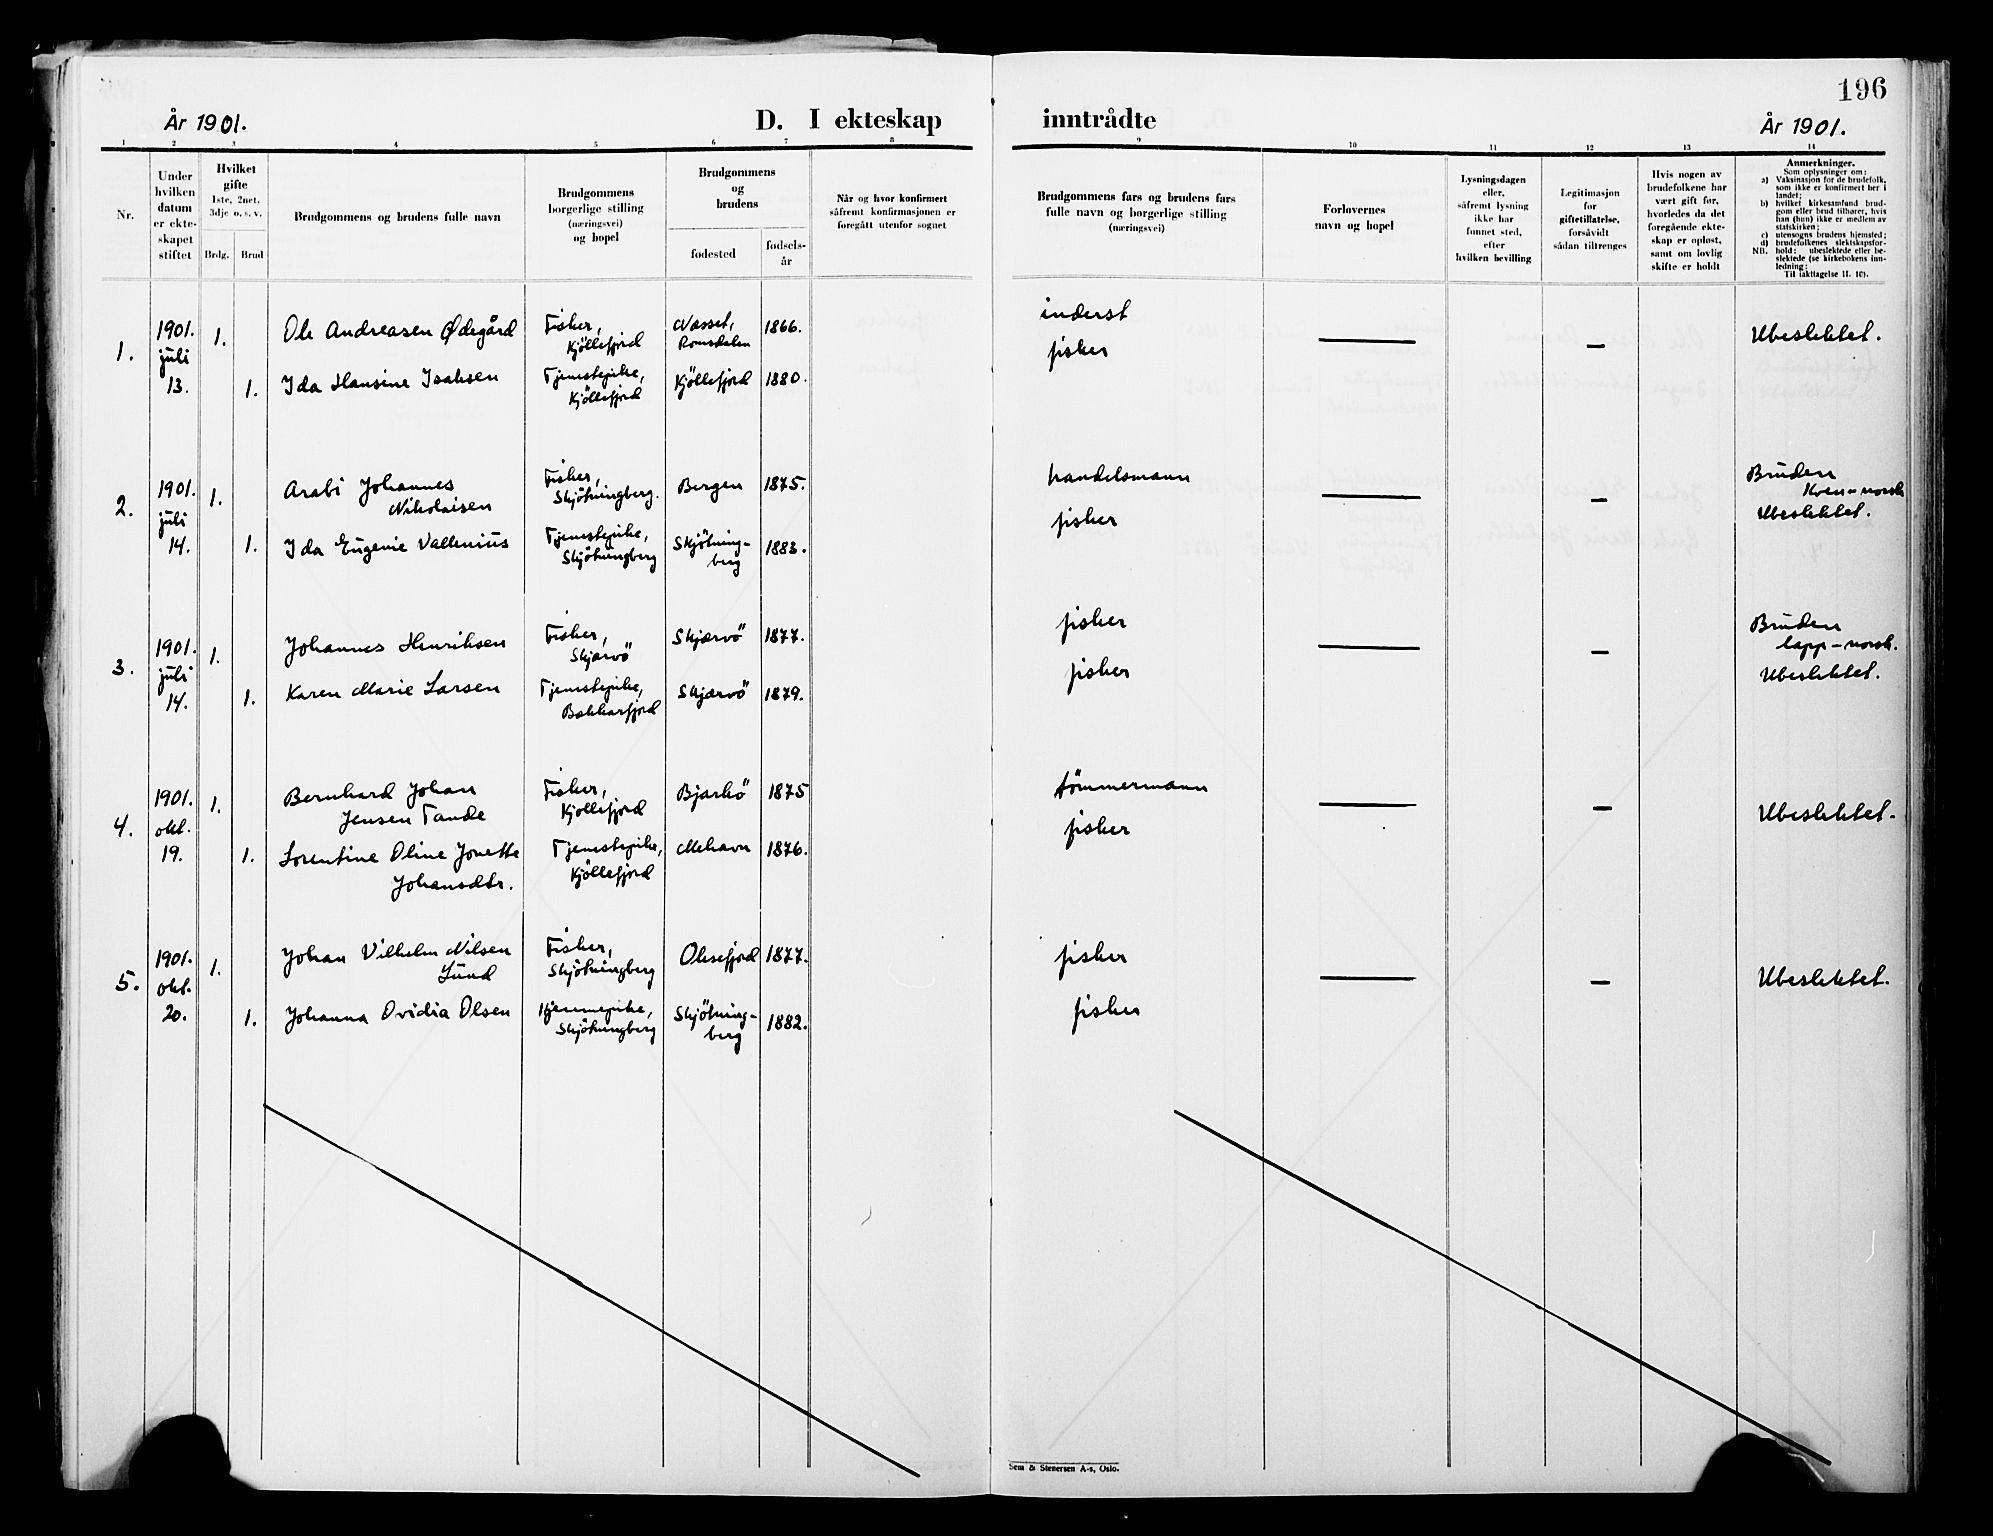 196
År 1901.
D. I ekteskap
inntrådte
År 1901.
1
2
3
4
5
6
7
8
9
10
11
12
13
14
Nr.
Under
hvilken
datum
er ekte-
skapet
stiftet
Hvilket
gifte
1ste, 2net,
3dje o. s. v.
Brdg.
Brud
Brudgommens og brudens fulle navn
Brudgommens
borgerlige stilling
(næringsvei)
og bopel
Brudgommens
og
brudens
fødested
fødsels-
år
Når og hvor konfirmert
såfremt konfirmasjonen er
foregått utenfor sognet
Brudgommens fars og brudens fars
fulle navn og borgerlige stilling
(næringsvei)
Forlovernes
navn og bopel
Lysningsdagen
eller,
såfremt lysning
ikke har
funnet sted,
efter
hvilken bevilling
Legitimasjon
for
giftetillatelse,
forsåvidt
sådan tiltrenges
Hvis nogen av
brudefolkene har
vært gift før,
hvorledes da det
foregående ekte-
skap er opløst,
samt om lovlig
skifte er holdt
Anmerkninger.
Som oplysninger om:
a) Vaksinasjon for de brudefolk,
som ikke er konfirmert her i
landet;
b) hvilket kirkesamfund brud-
gom eller brud tilhører, hvis
han (hun) ikke er medlem av
statskirken;
c) utensogns brudens hjemsted;
d) brudefolkenes slektskapsfor-
hold: ubeslektede eller be-
slektede (se kirkebokens inn-
ledning;
NB.
Til iakttagelse II. 10).
1.
1901.
juli
13.
1.
Ole Andreasen Ødegård
Fisher,
Kjöllefjord
Næsset,
Romsdalen
1866.
inderst
Ubeslektet.
1.
Ida Hansine Isaksen
Tjenestepike,
Kjöllefjord
Kjöllefjord
1880.
fisker
2.
1901.
juli
14.
1.
Arabi Johannes
Nikolaisen
Fisker,
Skjötningberg.
Bergen
1875.
handelsmann
Bruden
Kven-norsk
Ubeslektet.
1.
Ida Eugenie Vallenius
Tjenestepike,
Skjötningberg
Skjötning-
berg
1883.
fisker
3.
1901.
juli
14.
1.
Johannes Henriksen
Fisker,
Skjærvö
Skjærvö
1877.
fisker
Bruden
lapp-norsk.
Ubeslektet.
1.
Karen Marie Larsen
Tjenestepike,
Bekkarfjord
Skjærvö
1879.
fisker
4.
1901.
okt.
19.
1.
Bernhard Johan
Jensen Tande
Fisker,
Kjöllefjord
Bjarkö
1875
tömmermann
Ubeslektet.
1.
Lorentine Oline Jonette
Johansdtr.
Tjenestepike,
Kjöllefjord
Mehavn
1876.
fisker
5.
1901.
okt.
20.
1.
Johan Vilhelm Nilsen
Lund
Fisker,
Skjötningberg
Oksefjord
1877.
fisker
Ubeslektet.
1.
Johanna Ovidia Olsen
Hjemmepike,
Skjötningberg
Skjötning-
berg
1882.
fisker
Sem & Stenersen A-s, Oslo.